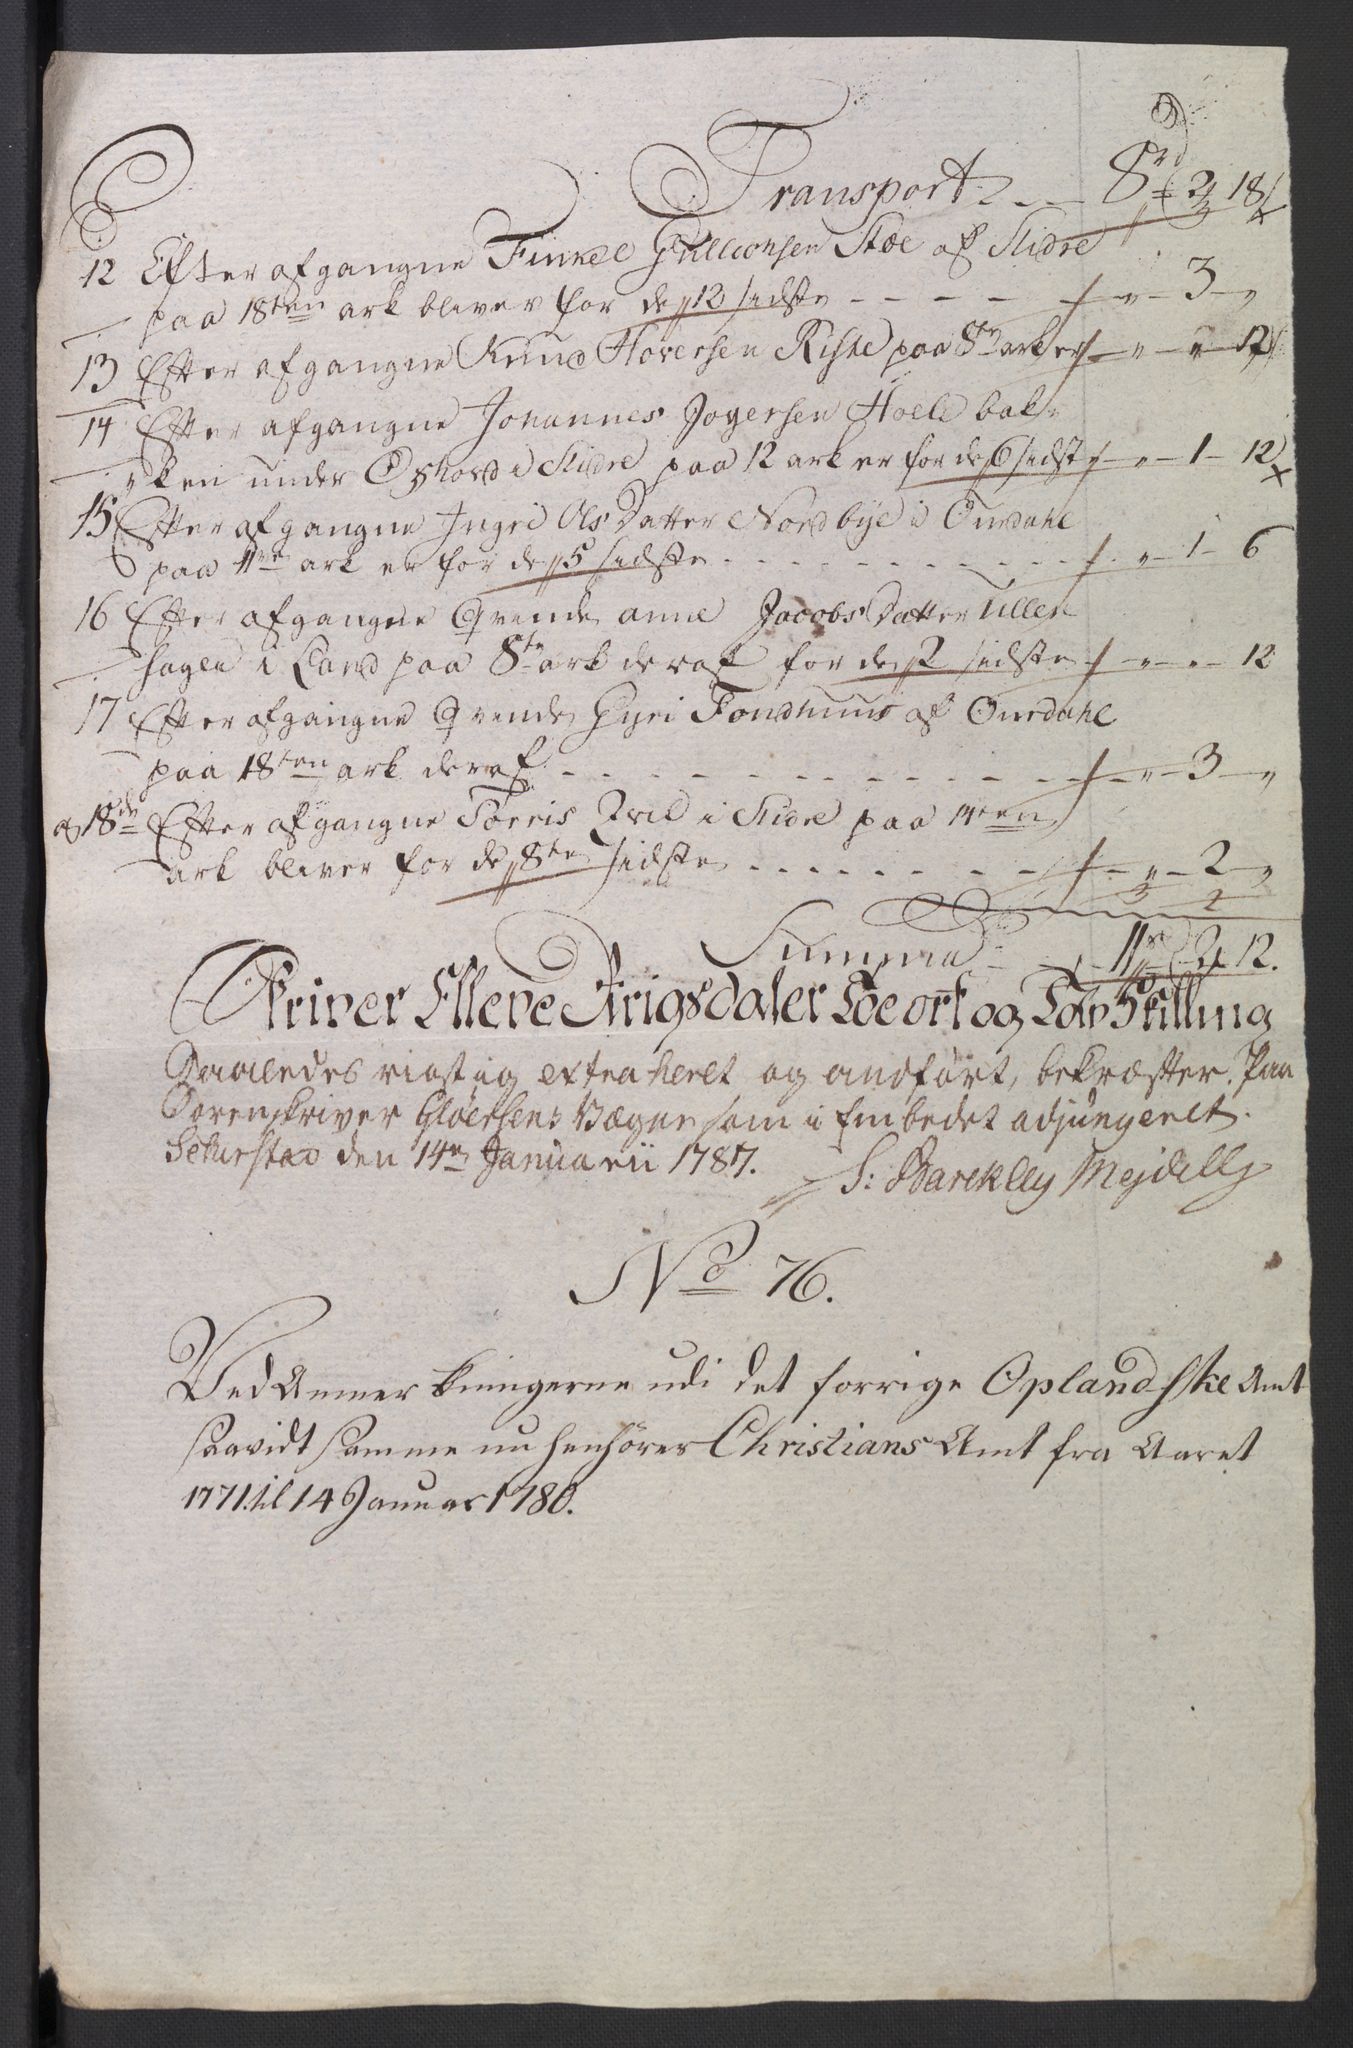 Transport - - 8 rd 2 18
12 Efter afgangne Finkel Gulleonsen Stoe af Slidre
paa 18ten ark bliver for de 12 sidste - - - - " - 3 - "
13 Efter afgangne Knud Hoversen Riste paa 8te ark er - " - " 12
14 Efter afgangne Johannes Jogersen Hoele bak-
ken under i Slidre paa 12 ark er for de 6 sidste - " - 1 - 12
15 Efter afgangne Ingri Ols Datter Nordbye i Ourdahl
paa 11ve ark er for de 5 sidste - - - - " - 1 - 6
16 Efter afgangne Qvinde anne Jacobs Datter Ullen
hagen i Land paa 8te ark deraf for de 2 sidste - " - " - 12
17 Efter afgangne Qvinde Gyri Fondhuus af Ourdahl
paa 18ten ark deraf - - - - " - 3 - "
og 18de Efter afgangne Torris Qvil i Slidre paa 14ten
ark bliver for de 8te sidste - - - - " - 2 - "
3 2
Summa - - 11 rd 2 12.
Skriver Elleve Rigsdaler Toe ort og Tolv Skilling
Saaledes rigtig extraheret og anført, bekræfter. Paa
Sorenskriver Gløersens Vægne som i Embedet adjungeret.
den 14n Januarii 1787. S: Barckley Mejdell
No 76.
Ved Anmerkningerne udi det forrige Oplandske Amt
saavidt samme nu henhører Christians Amt fra Aaret
1771 til 14 Januar 1780.